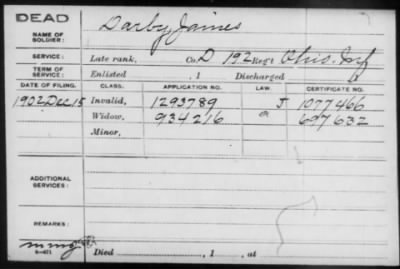 DEAD
NAME OF SOLDIER: Darby, James
SERVICE: Late rank, Co. D 192 Reg't Ohio Inf
TERM OF SERVICE: Enlisted , 1 Discharged
DATE OF FILING. CLASS. APPLICATION NO. LAW. CERTIFICATE NO.
1902 Dec 15 Invalid, 1293789 J 1077466
Widow, 934216 697632
Minor,
ADDITIONAL SERVICES:
REMARKS:
Died , 1 , at